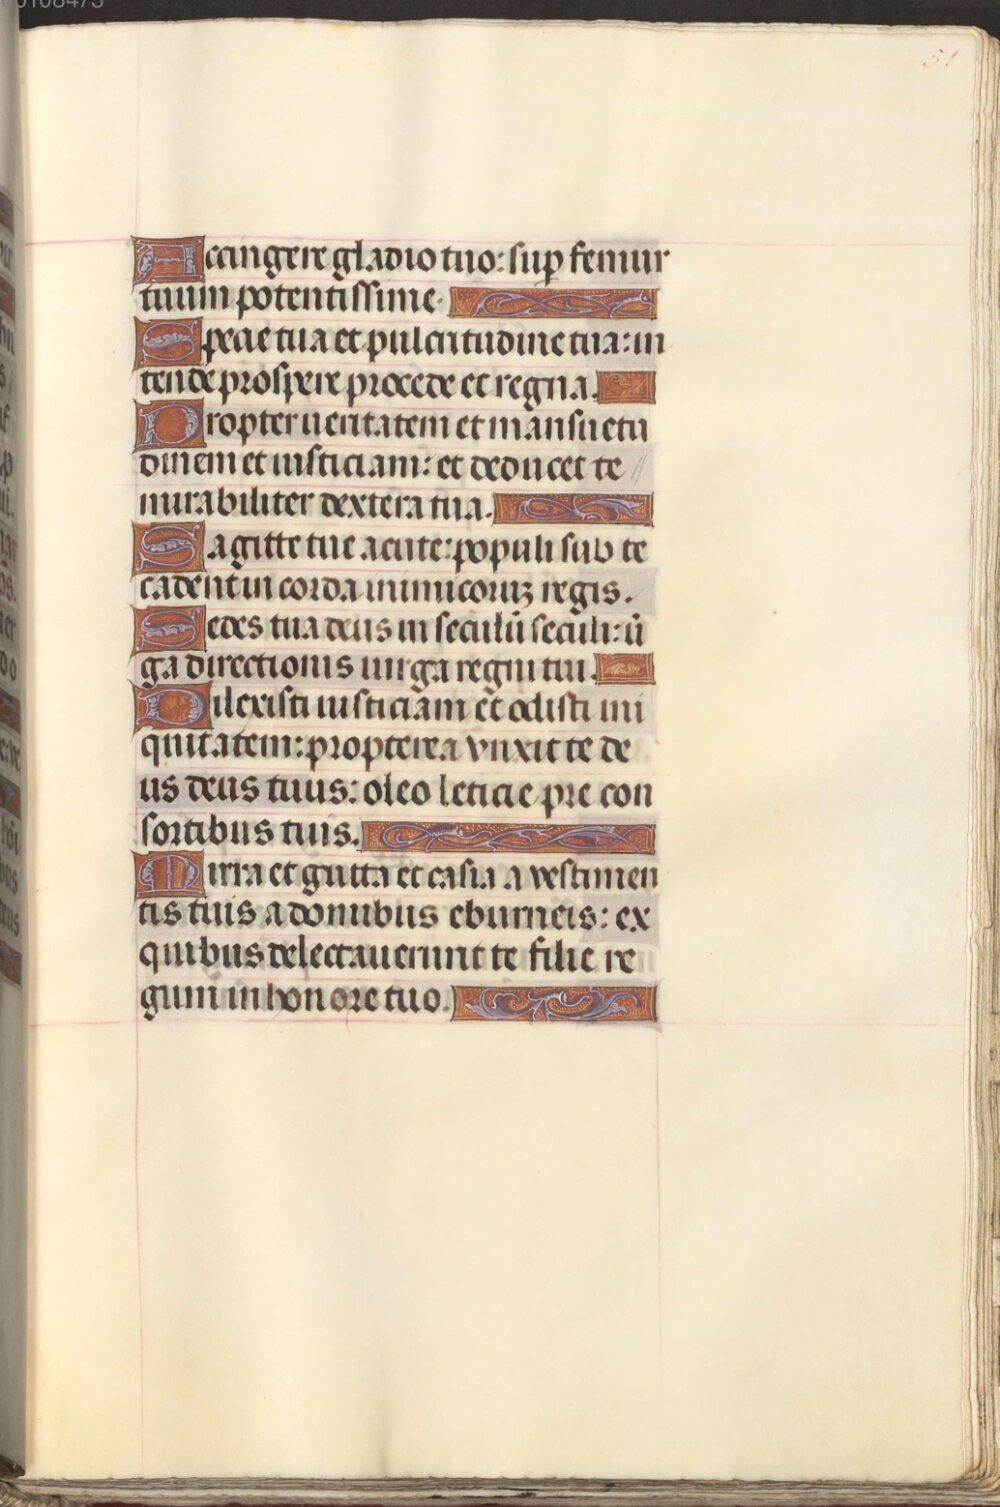 51
Accingere gladio tuo: sup femur
tuum potentissime.
Specie tua et pulcritudine tua: in
tende prospere procede et regna.
Propter ueritatem et mansuetu
dinem et iusticiam: et deducet te
mirabiliter dextera tua.
Sagitte tue acute: populi sub te
cadent in corda inimicoruꝫ regis.
Sedes tua deus in seculū seculi: ū
ga directionis uirga regni tui.
Dilexisti iusticiam et odisti ini
quitatem: propterea vnxit te de
us deus tuus: oleo leticie pre con
sortibus tuis.
Mirra et gutta et casia a vestimen
tis tuis a domibus eburneis: ex
quibus delectauerunt te filie re
gum in honore tuo.